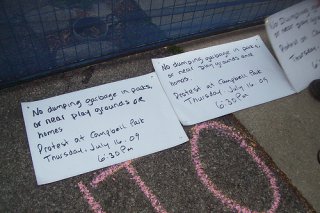 No dumping garbage in parks,
or near play grounds or
homes
Protest at Campbell Park
Thursday, July 16, 09
6:30 Pm
No dumping garbage in parks,
or near play grounds and
homes.
Protest at Campbell Park
Thursday July 16 09
6:30 PM
No dumping
or near
homes
Protest at
Thursday
TO